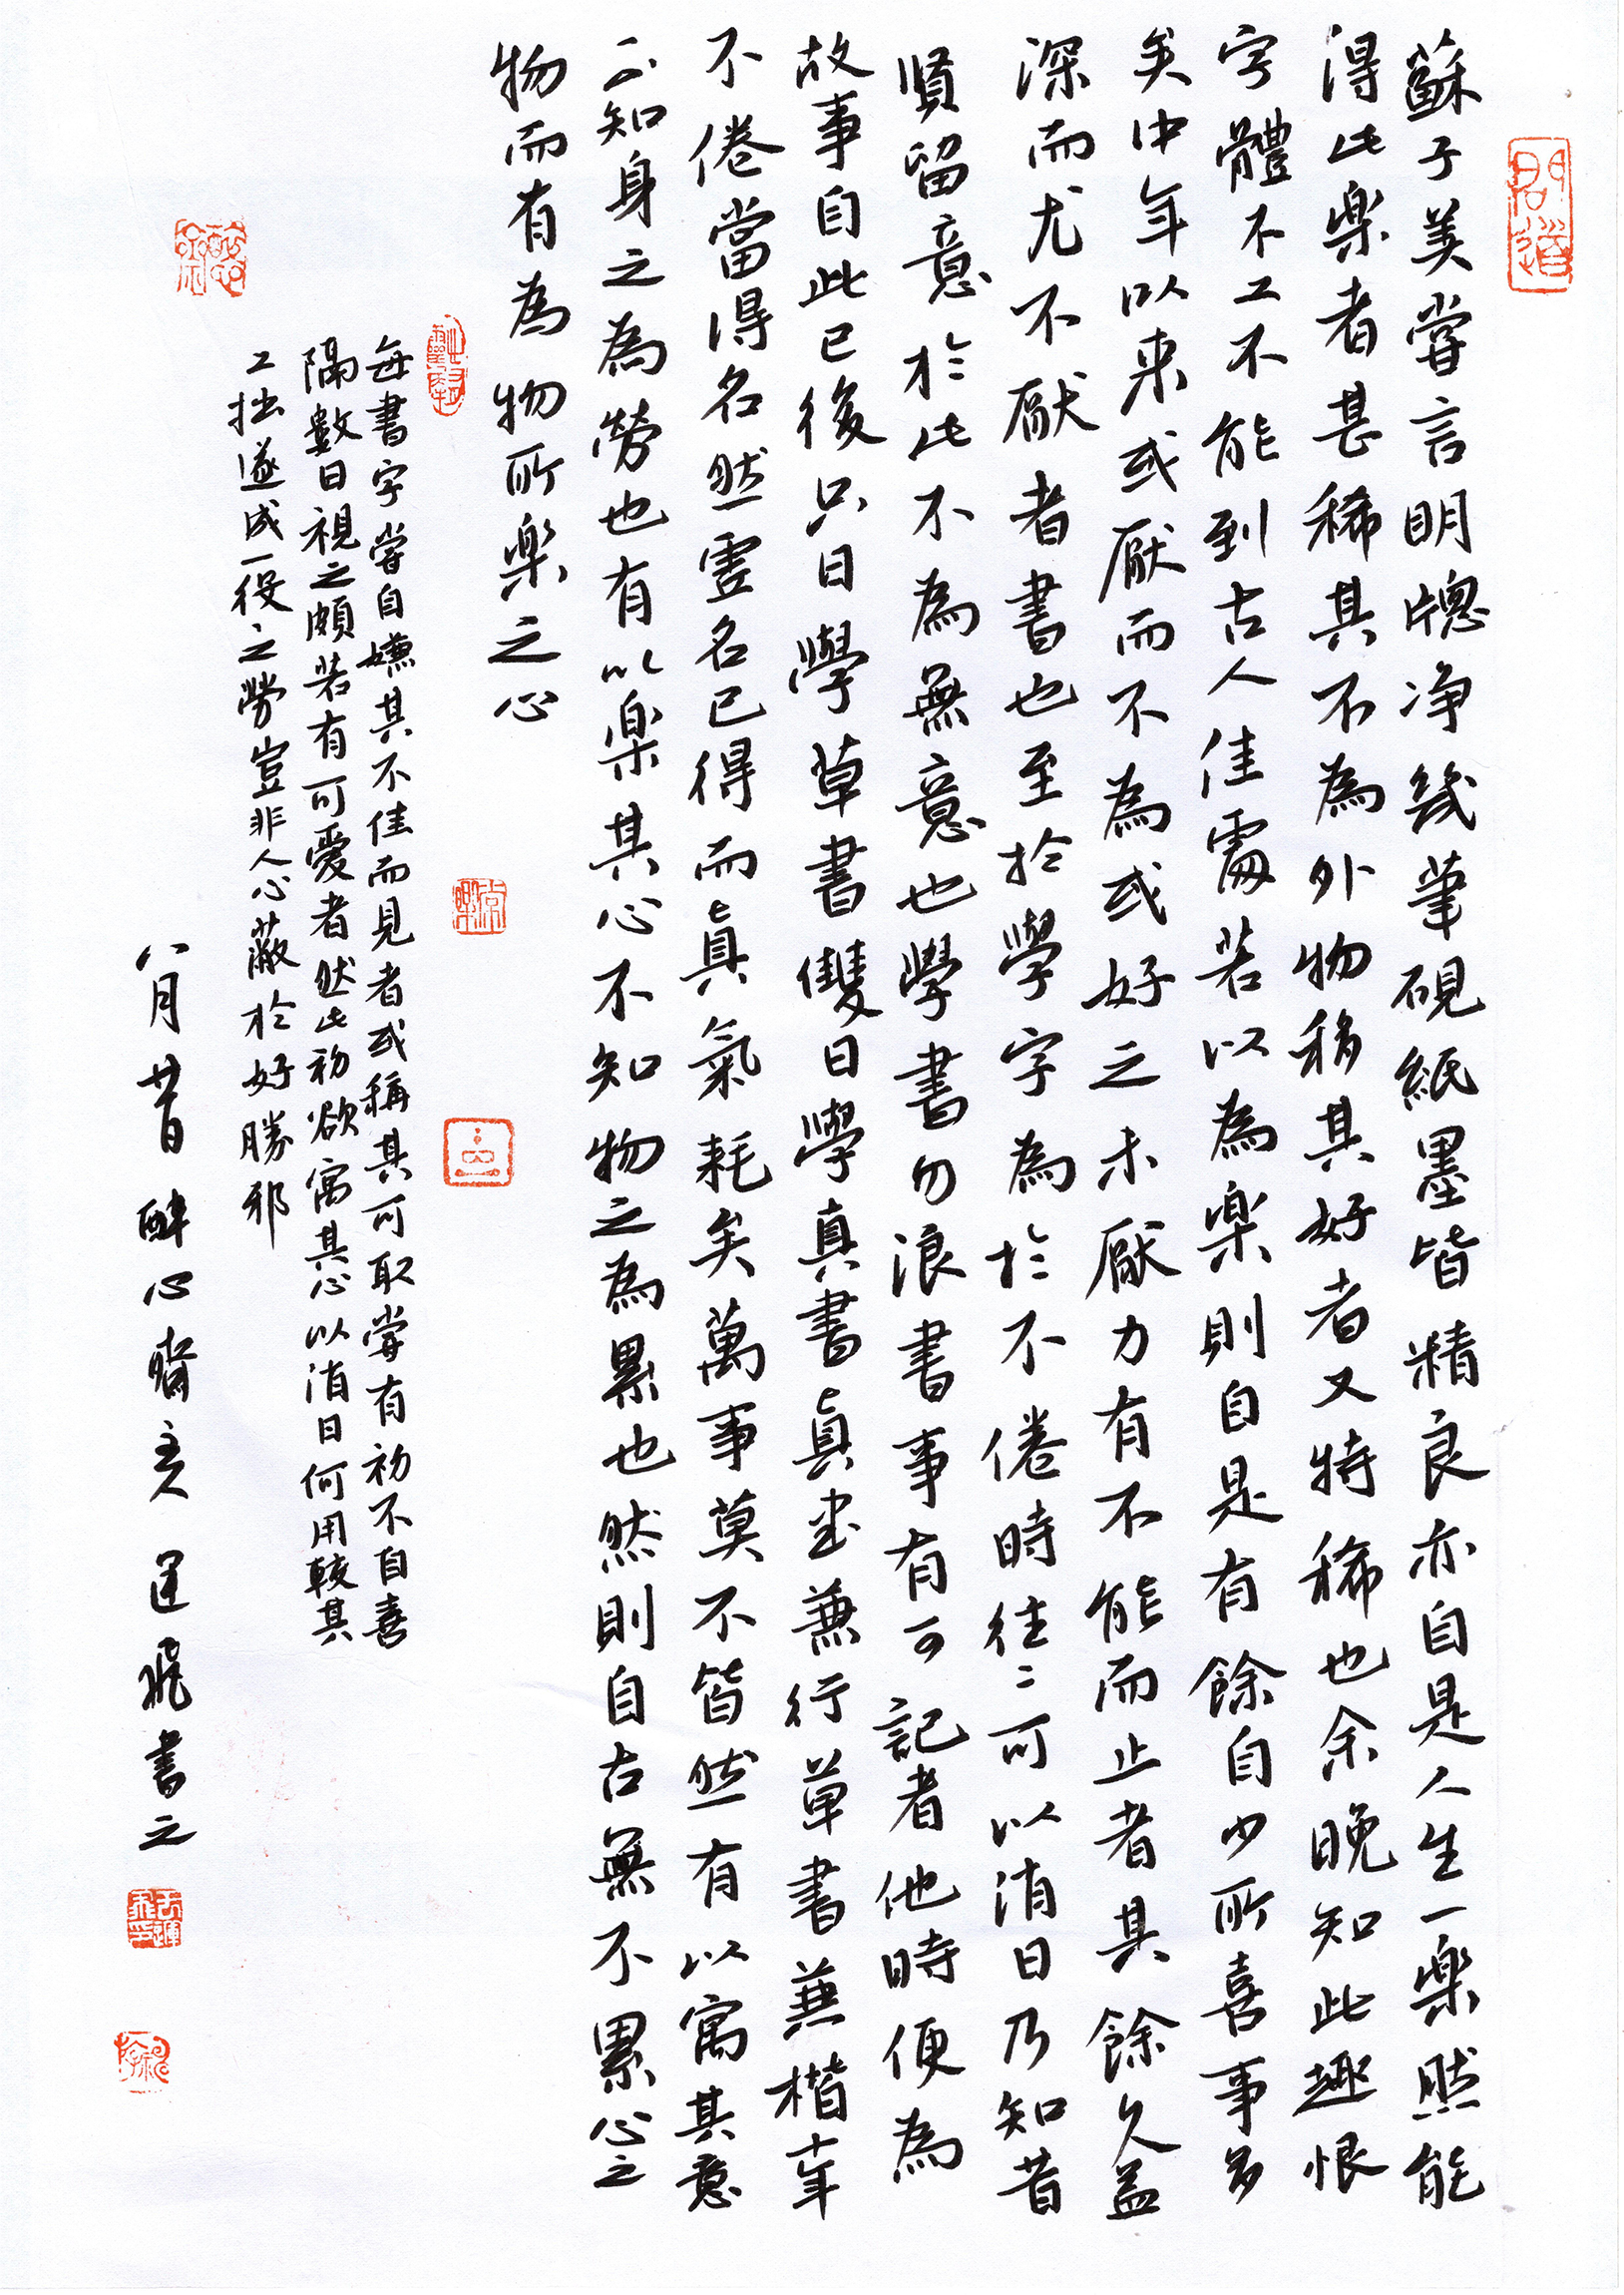 問道
蘇子美嘗言明牎净幾筆硯紙墨皆精良亦自是人生一樂然能
得此樂者甚稀其不為外物移其好者又特稀也余晚知此趣恨
字體不工不能到古人佳處若以為樂則自是有餘自少所喜事多
矣中年以來或厭而不為或好之未厭力有不能而止者其餘久益
深而尤不厭者書也至於學字為於不倦時往〻可以消日乃知昔
賢留意於此不為無意也學書勿浪書事有可記者他時便為
故事自此已後只日學草書雙日學真書真書兼行草書兼楷十年
不倦當得名然虛名已得而真氣耗矣萬事莫不皆然有以寓其意
不知身之為勞也有以樂其心不知物之為累也然則自古無不累心之
物而有為物所樂之心
每書字嘗自嫌其不佳而見者或稱其可取嘗有初不自喜
隔數日視之頗若有可愛者然此初欲寓其心以消日何用較其
工拙遂成一役之勞豈非人心蔽於好勝邪
八月昔醉心齋主人運飛書之